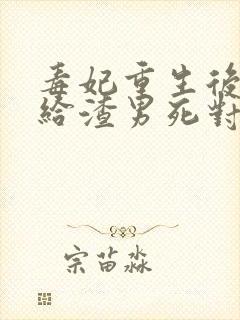 毒妃重生後
給渣男死對
宗苗淼